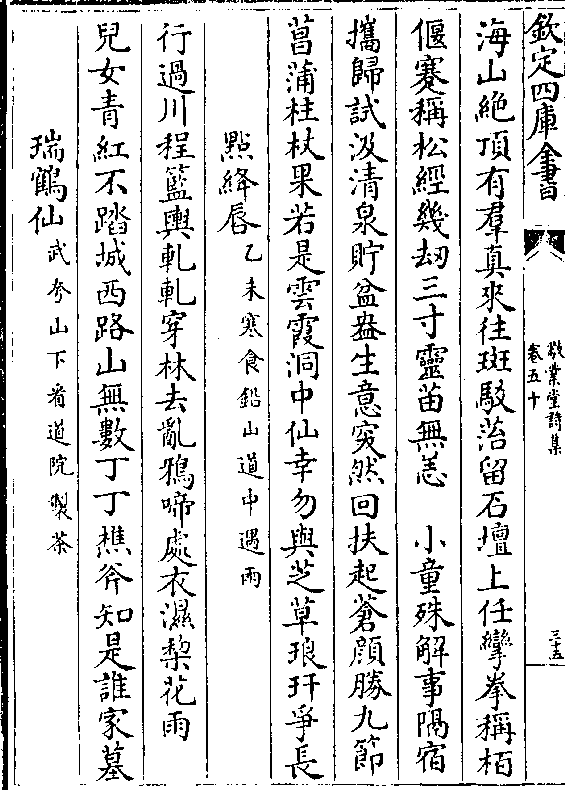 欽定四庫全書
敬業堂詩集
卷五十
三十五
海山絶頂有羣真來往斑駁苔留石壇上任攣拳稱栢
偃蹇稱松經幾刼三寸靈苗無恙　小童殊解事隔宿
攜歸試汲清泉貯盆盎生意突然回扶起蒼顔勝九節
菖蒲柱杖果若是雲霞洞中仙幸勿與芝草琅玕爭長
點絳唇乙未寒食鉛山道中遇雨
行過川程籃輿軋軋穿林去亂鴉啼處衣濕梨花雨
兒女青紅不踏城西路山無數丁丁樵斧知是誰家墓
瑞鶴仙武夷山下看道院製茶